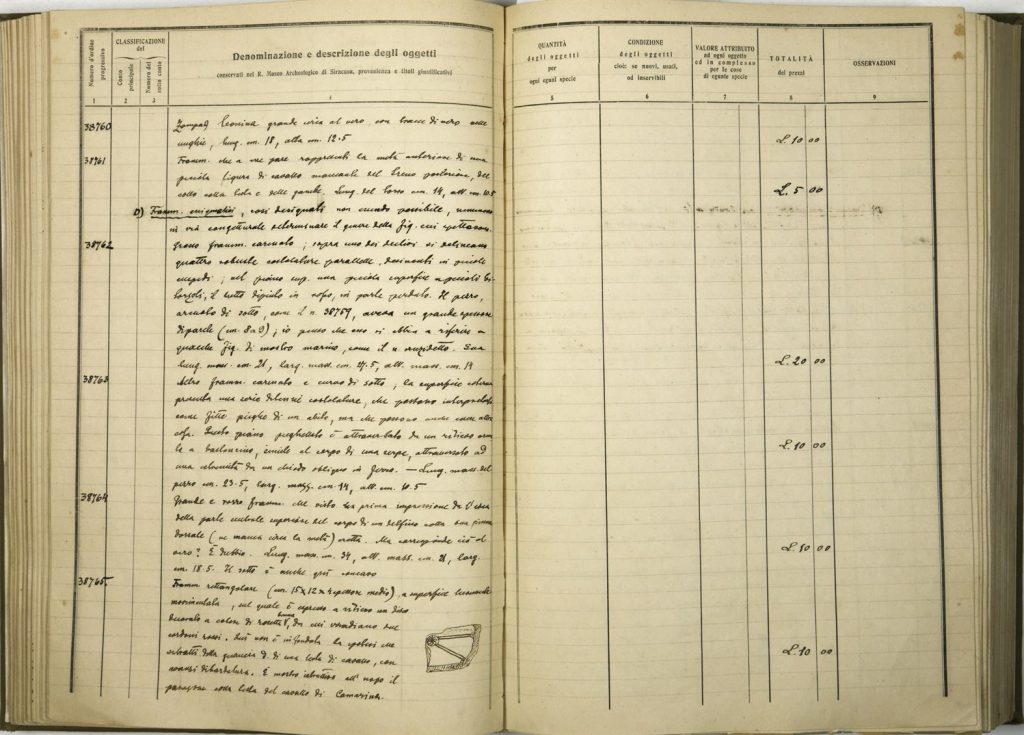 Numero d'ordine progressivo
CLASSIFICAZIONE del
Conto principale
Numero del sotto conto
Denominazione e descrizione degli oggetti
conservati nel R. Museo Archeologico di Siracusa, provenienza e titoli giustificativi
1 2 3 4
38760 Zampa leonina grande circa al vero, con tracce di nero nelle
unghie, lung. cm. 18, alta cm. 12.5
38761 Framm. che a me pare rappresenti la metà anteriore di una
piccola figura di cavallo mancante del treno posteriore, del
collo colla testa e delle gambe. Lung. del torso cm. 14, alt. cm. 10.5
D) Framm. enigmatici, così designati non essendo possibile, nemmeno
in via congetturale determinare il genere della fig. cui spettavano.
38762 Grosso framm. carenato; sopra uno dei declivi si delineano
quattro robuste costolature parallele, desinenti in piccole
; nel piano sup. una piccola superficie a piccoli bi-
torzoli, il tutto dipinto in rosso, in parte perduto. Il pezzo,
arcuato di sotto, come il n. 38759, aveva un grande spessore
di parete (cm. 8 a 9); io penso che esso si abbia a riferire a
qualche fig. di mostro marino, come il n. suddetto. Sua
lung. mass. cm. 21, larg. mass. cm. 14.5, alt. mass. cm. 14
38763 Altro framm. carenato e curvo di sotto; la superficie esterna
presenta una serie di tenui costolature, che possono interpretarsi
come fitte pieghe di un abito, ma che possono anche essere altra
cosa. Questo piano pieghettato è attraversato da un rilievo
a bastoncino, simile al corpo di una serpe, attraversato ad
una estremità da un chiodo obliquo in ferro. — Lung. mass. del
pezzo cm. 23.5, larg. magg. cm. 14, alt. cm. 10.5
38764 Grande e grosso framm. che visto fa prima impressione
della parte centrale superiore del corpo di un delfino colla sua pinna
dorsale (ne manca circa la metà) rotta. Ma corrisponde ciò al
vero? È dubbio. Lung. mass. cm. 34, alt. mass. cm. 21, larg.
cm. 18.5. Il sotto è anche qui concavo
38765. Framm. rettangolare (cm. 15 x 12 x 4 spessore medio), a superficie lievemente
movimentata, sul quale è espresso a rilievo un disco
decorato a colore di rosetta bianca, da cui irradiano due
cordoni rossi. Già non è infondata la ipotesi che
si tratti della guancia d. di una testa di cavallo, con
avanzi di bardatura. È molto istruttivo all'uopo il
paragone colla testa del cavallo di Camarina.
QUANTITÀ degli oggetti per ogni egual specie
CONDIZIONE degli oggetti cioè: se nuovi, usati, od inservibili
VALORE ATTRIBUITO ad ogni oggetto ed in complesso per le cose di eguale specie
TOTALITÀ dei prezzi
OSSERVAZIONI
5 6 7 8 9
L. 10 00
L. 5 00
L. 20 00
L. 10 00
L. 10 00
L. 10 00